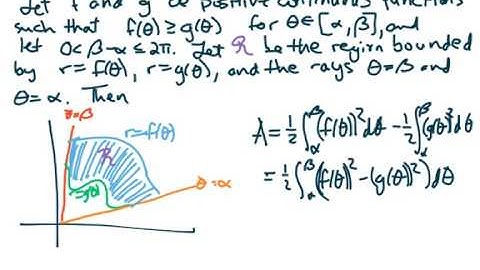 Let f and g be positive continuous functions
such that f(θ) ≥ g(θ) for θ∈[α, β], and
let 0<β-α≤2π. Let R be the region bounded
by r=f(θ), r=g(θ), and the rays θ=β and
θ=α. Then
θ=β
r=f(θ)
R
r=g(θ)
θ=α
A = 1/2 ∫_α^β (f(θ))² dθ - 1/2 ∫_α^β (g(θ))² dθ
= 1/2 ∫_α^β ((f(θ))² - (g(θ))²) dθ